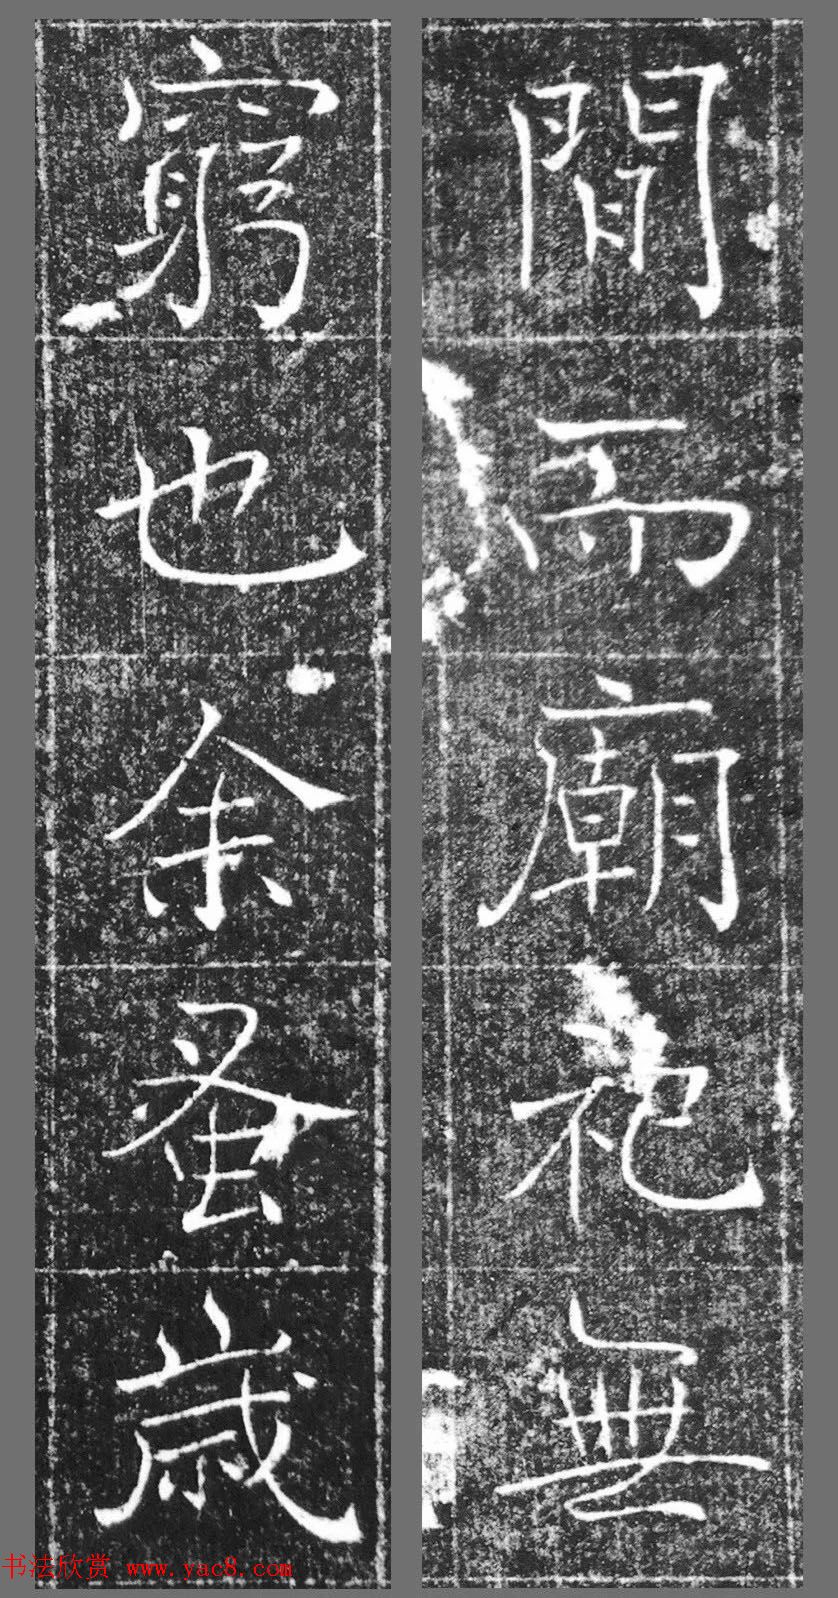 間而廟祀無
窮也余蚤歲
书法欣赏 www.yac8.com